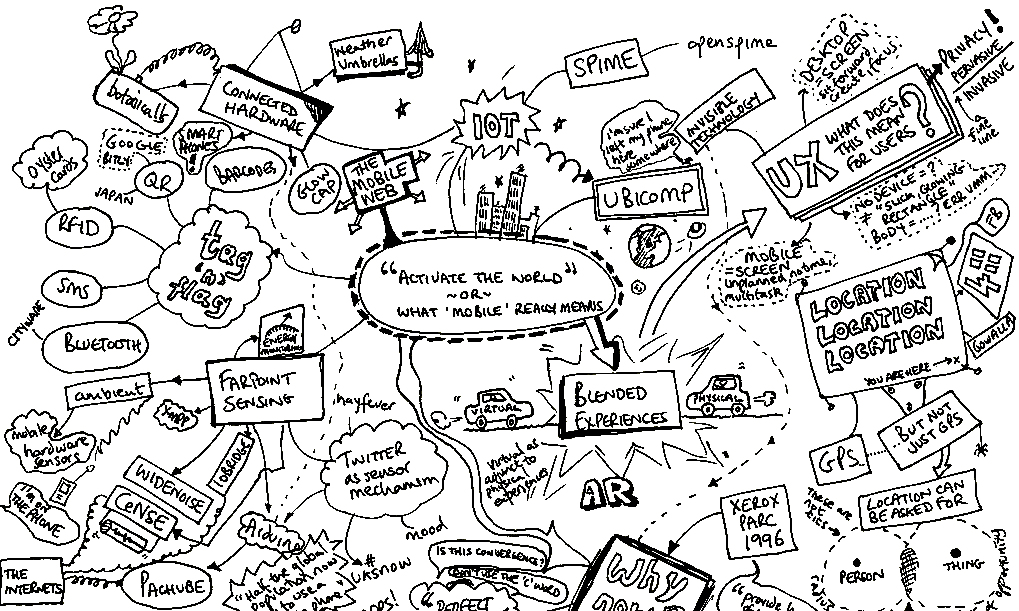 Weather
Umbrellas
botanicalls
CONNECTED
HARDWARE
SPIME
openspime
IOT
DESKTOP
= SCREEN
sit forward,
create, focus
PRIVACY!
PERVASIVE
INVASIVE
a fine
line
INVISIBLE
TECHNOLOGY
I'm sure I
left my phone
here
somewhere
UX WHAT DOES
THIS MEAN
FOR USERS?
OYSTER
CARDS
GOOGLE
BITLY
SMART
PHONES!
BARCODES
QR
JAPAN
GLOW
CAP
THE
MOBILE
WEB
UBICOMP
NO DEVICE = ?
≠ "SUCH GLOWING
RECTANGLE"
BODY = ...? ERR UMM...
RFID
tag
'n'
flag
"ACTIVATE THE WORLD"
~OR~
WHAT 'MOBILE' REALLY MEANS
MOBILE
= SCREEN
unplanned, no time,
multitask
FB
4
GOWALLA
LOCATION
LOCATION
LOCATION
YOU ARE HERE → x
SMS
CITYWARE
BLUETOOTH
ENERGY
MONITORING
FARPOINT
SENSING
ambient
XMPP
mobile
hardware
sensors
hayfever
VIRTUAL
BLENDED
EXPERIENCES
PHYSICAL
Virtual as
adjunct to
physical
experiences
AR
...BUT NOT
JUST GPS
GPS
LOCATION CAN
BE ASKED FOR
TWITTER
as sensor
mechanism
IOBRIDGE
WIDENOISE
CENSE
I'm ON
THE PHONE
mood
#
UKSNOW
THE
INTERNETS
PACHUBE
"Half the global
population now
to use a
phone
IS THIS CONVERGENCE?
DON'T USE THE 'C' WORD
"PERFECT
WHY
XEROX
PARC
1996
These are
not
PERSON
THING
"provide